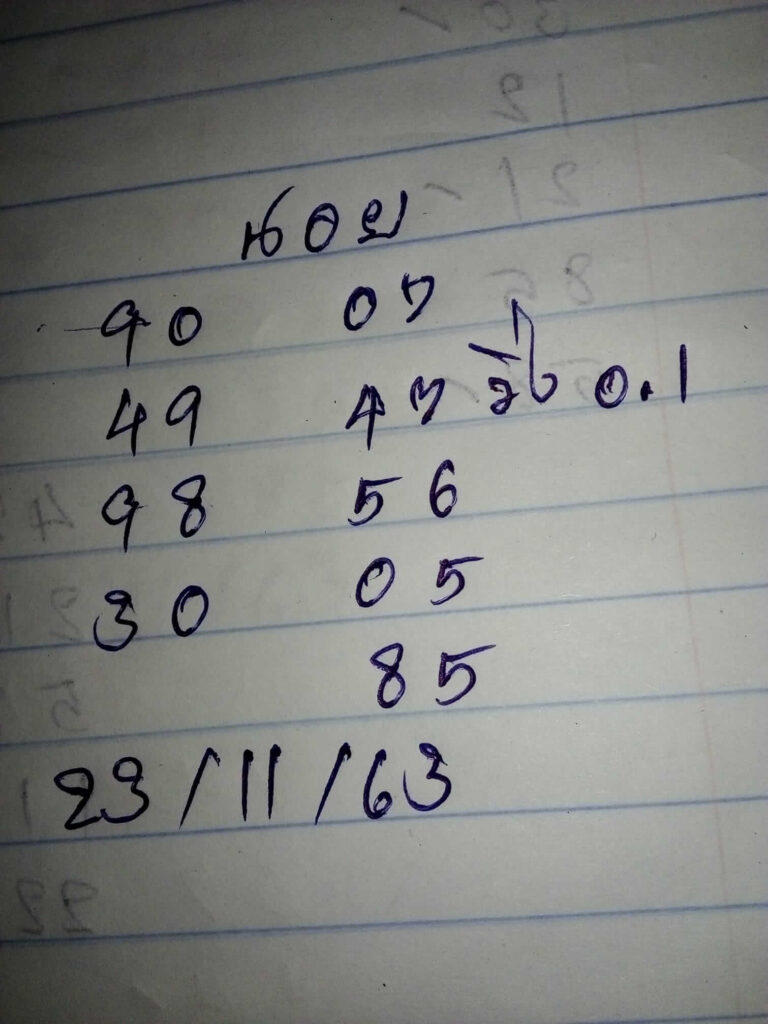 นอย
90 07
49 47 วิ่ง 0.1
98 56
30 05
85
23/11/63